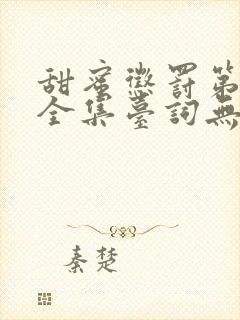 甜蜜懲罰第
全集臺詞無
秦楚